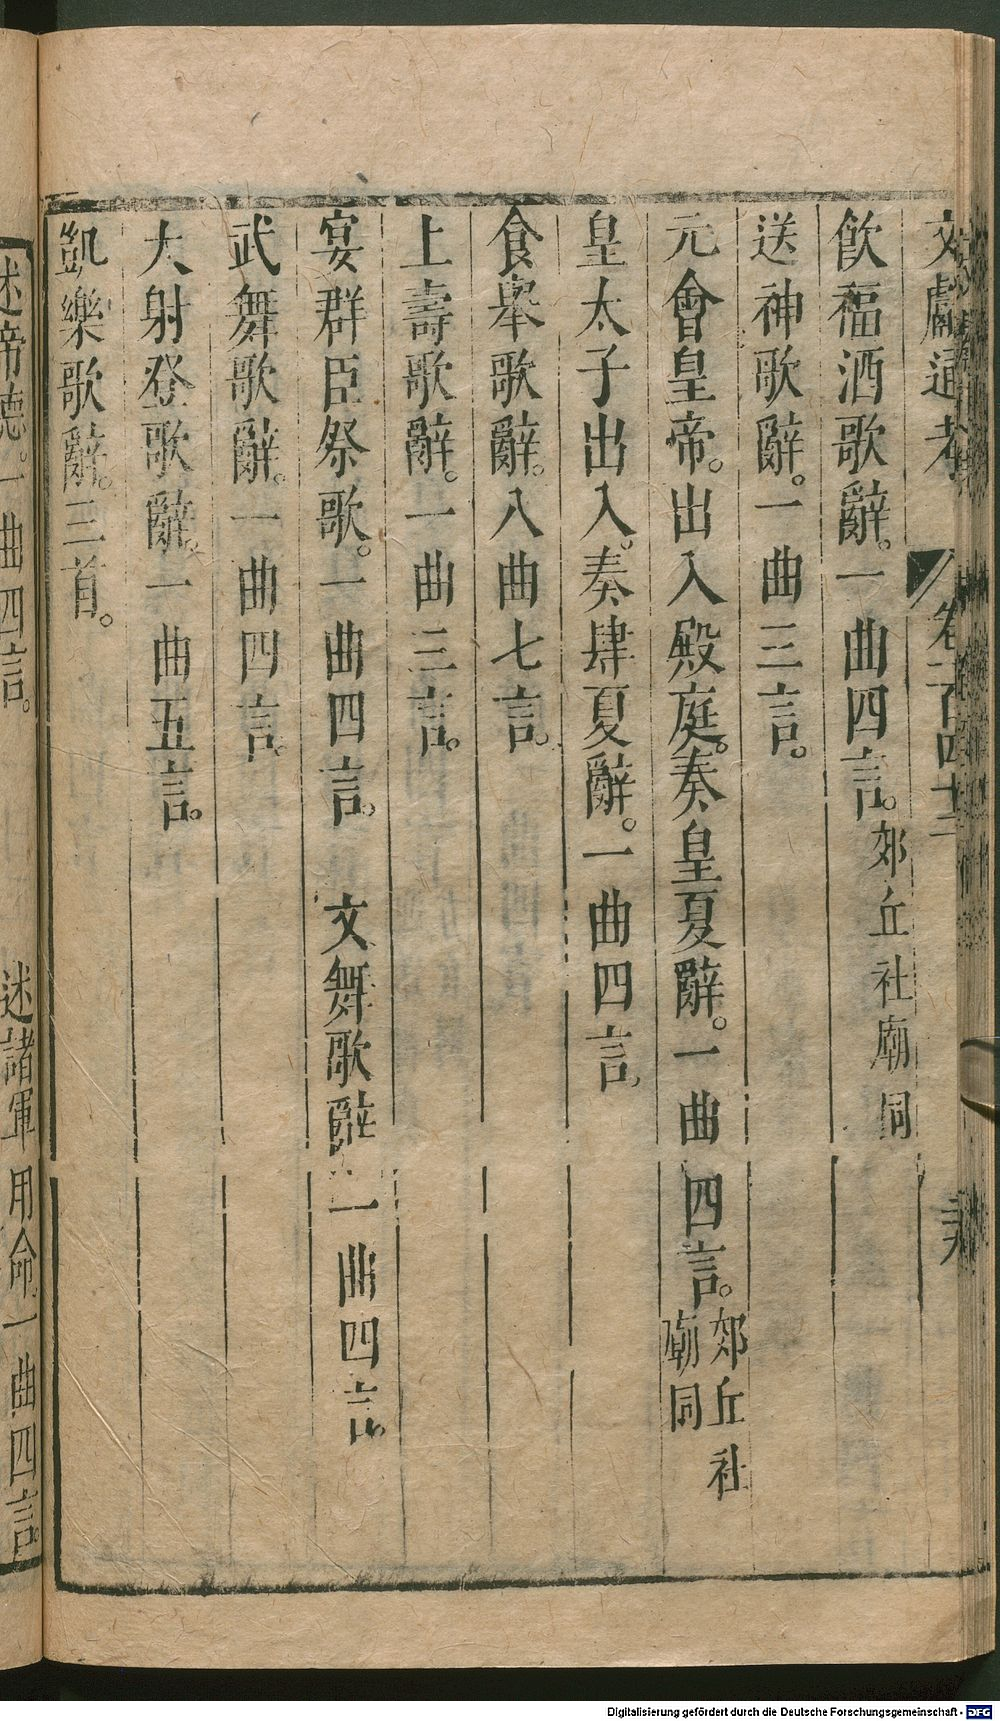 文獻通考 卷一百四十二
飲福酒歌辭。一曲四言。郊丘社廟同
送神歌辭。一曲三言。
元會皇帝。出入殿庭。奏皇夏辭。一曲四言。郊丘社廟同
皇太子出入。奏肆夏辭。一曲四言。
食舉歌辭。八曲七言。
上壽歌辭。一曲三言。
宴群臣祭歌。一曲四言。 文舞歌辭一曲四言。
武舞歌辭。一曲四言。
大射登歌辭。一曲五言。
凱樂歌辭。三首。
述帝德。一曲四言。 述諸軍用命。一曲四言。
Digitalisierung gefördert durch die Deutsche Forschungsgemeinschaft - DFG